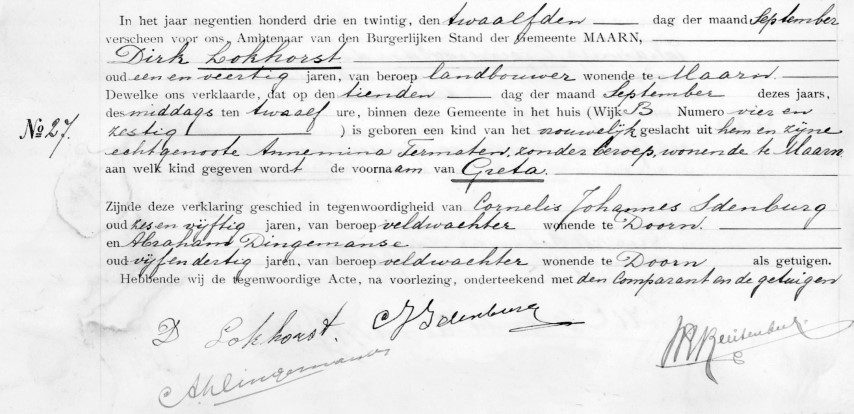 In het jaar negentien honderd drie en twintig, den twaalfden dag der maand September
verscheen voor ons, Ambtenaar van den Burgerlijken Stand der Gemeente MAARN,
Dirk Lokhorst
oud een en veertig jaren, van beroep landbouwer wonende te Maarn.
Dewelke ons verklaarde, dat op den tienden dag der maand September dezes jaars,
des middags ten twaalf ure, binnen deze Gemeente in het huis (Wijk B Numero vier en
No 27. zestig ) is geboren een kind van het vrouwelijk geslacht uit hem en zijne
echtgenoote Annemina Termaten, zonder beroep, wonende te Maarn
aan welk kind gegeven wordt de voornaam van Greta.
Zijnde deze verklaring geschied in tegenwoordigheid van Cornelis Johannes Idenburg
oud zes en vijftig jaren, van beroep veldwachter wonende te Doorn.
en Abraham Dingemanse
oud vijf en dertig jaren, van beroep veldwachter wonende te Doorn als getuigen.
Hebbende wij de tegenwoordige Acte, na voorlezing, onderteekend met den Comparant en de getuigen
D Lokhorst. CJ Idenburg
A Dingemanse